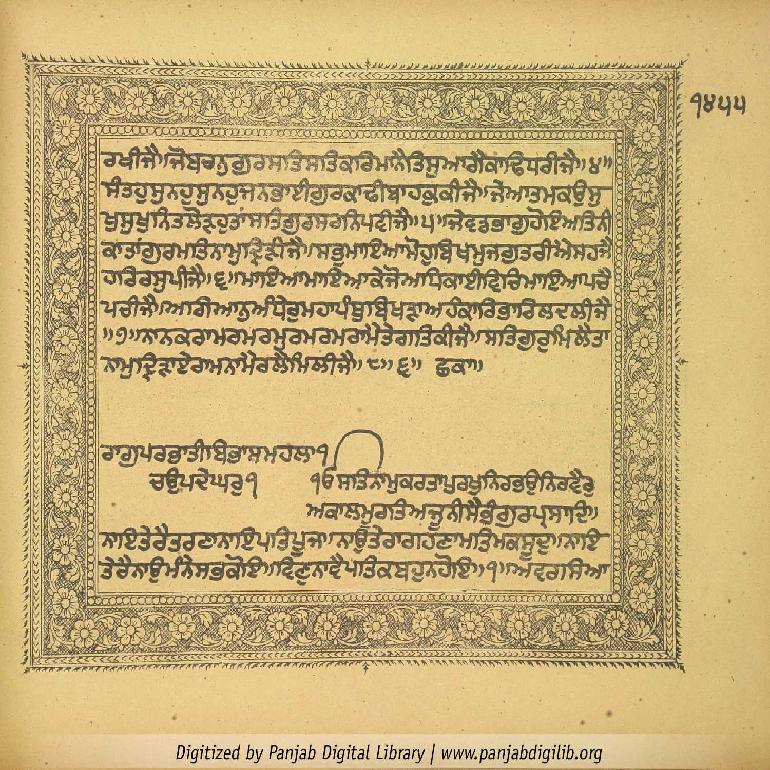 ੧੪੫੫
ਰਖੀਜੈ॥ਜੋਬਚਨੁਗੁਰਸਤਿਸਤਿਕਰਿਮਾਨੈਤਿਸੁਆਗੈਕਾਢਿਧਰੀਜੈ॥੪॥
ਸੰਤਹੁਸੁਨਹੁਸੁਨਹੁਜਨਭਾਈਗੁਰਕਾਢੀਬਾਹਕੁਕੀਜੈ॥ਜੇਆਤਮਕਉਸੁ
ਖੁਸੁਖੁਨਿਤਲੋੜਹੁਤਾਂਸਤਿਗੁਰਸਰਨਿਪਵੀਜੈ॥੫॥ਜੇਵਡਭਾਗੁਹੋਇਅਤਿਨੀ
ਕਾਤਾਂਗੁਰਮਤਿਨਾਮੁਦ੍ਰਿੜੀਜੈ॥ਸਭੁਮਾਇਆਮੋਹੁਬਿਖਮੁਜਗੁਤਰੀਐਸਹਜੈ
ਹਰਿਰਸੁਪੀਜੈ॥੬॥ਮਾਇਆਮਾਇਆਕੇਜੋਅਧਿਕਾਈਵਿਚਿਮਾਇਆਪਚੈ
ਪਚੀਜੈ॥ਅਗਿਆਨੁਅੰਧੇਰੁਮਹਾਪੰਥੁਬਿਖੜਾਅਹੰਕਾਰਿਭਾਰਿਲਦਲੀਜੈ
॥੭॥ਨਾਨਕਰਾਮਰਮਰਮੁਰਮਰਮਰਾਮੈਤੇਗਤਿਕੀਜੈ॥ਸਤਿਗੁਰੁਮਿਲੈਤਾ
ਨਾਮੁਦ੍ਰਿੜਾਏਰਾਮਨਾਮੈਰਲੈਮਿਲੀਜੈ॥੮॥੬॥ ਛਕਾ॥
ਰਾਗੁਪਰਭਾਤੀਬਿਭਾਸਮਹਲਾ੧
ਚਉਪਦੇਘਰੁ੧
ੴਸਤਿਨਾਮੁਕਰਤਾਪੁਰਖੁਨਿਰਭਉਨਿਰਵੈਰੁ
ਅਕਾਲਮੂਰਤਿਅਜੂਨੀਸੈਭੰਗੁਰਪ੍ਰਸਾਦਿ॥
ਨਾਇਤੇਰੈਤਰਣਾਨਾਇਪਤਿਪੂਜ॥ਨਾਉਤੇਰਾਗਹਣਾਮਤਿਮਕਸੂਦੁ॥ਨਾਇ
ਤੇਰੈਨਾਉਮੰਨੇਸਭਕੋਇ॥ਵਿਣੁਨਾਵੈਪਤਿਕਬਹੁਨਹੋਇ॥੧॥ਅਵਰਸਿਆ
Digitized by Panjab Digital Library | www.panjabdigilib.org